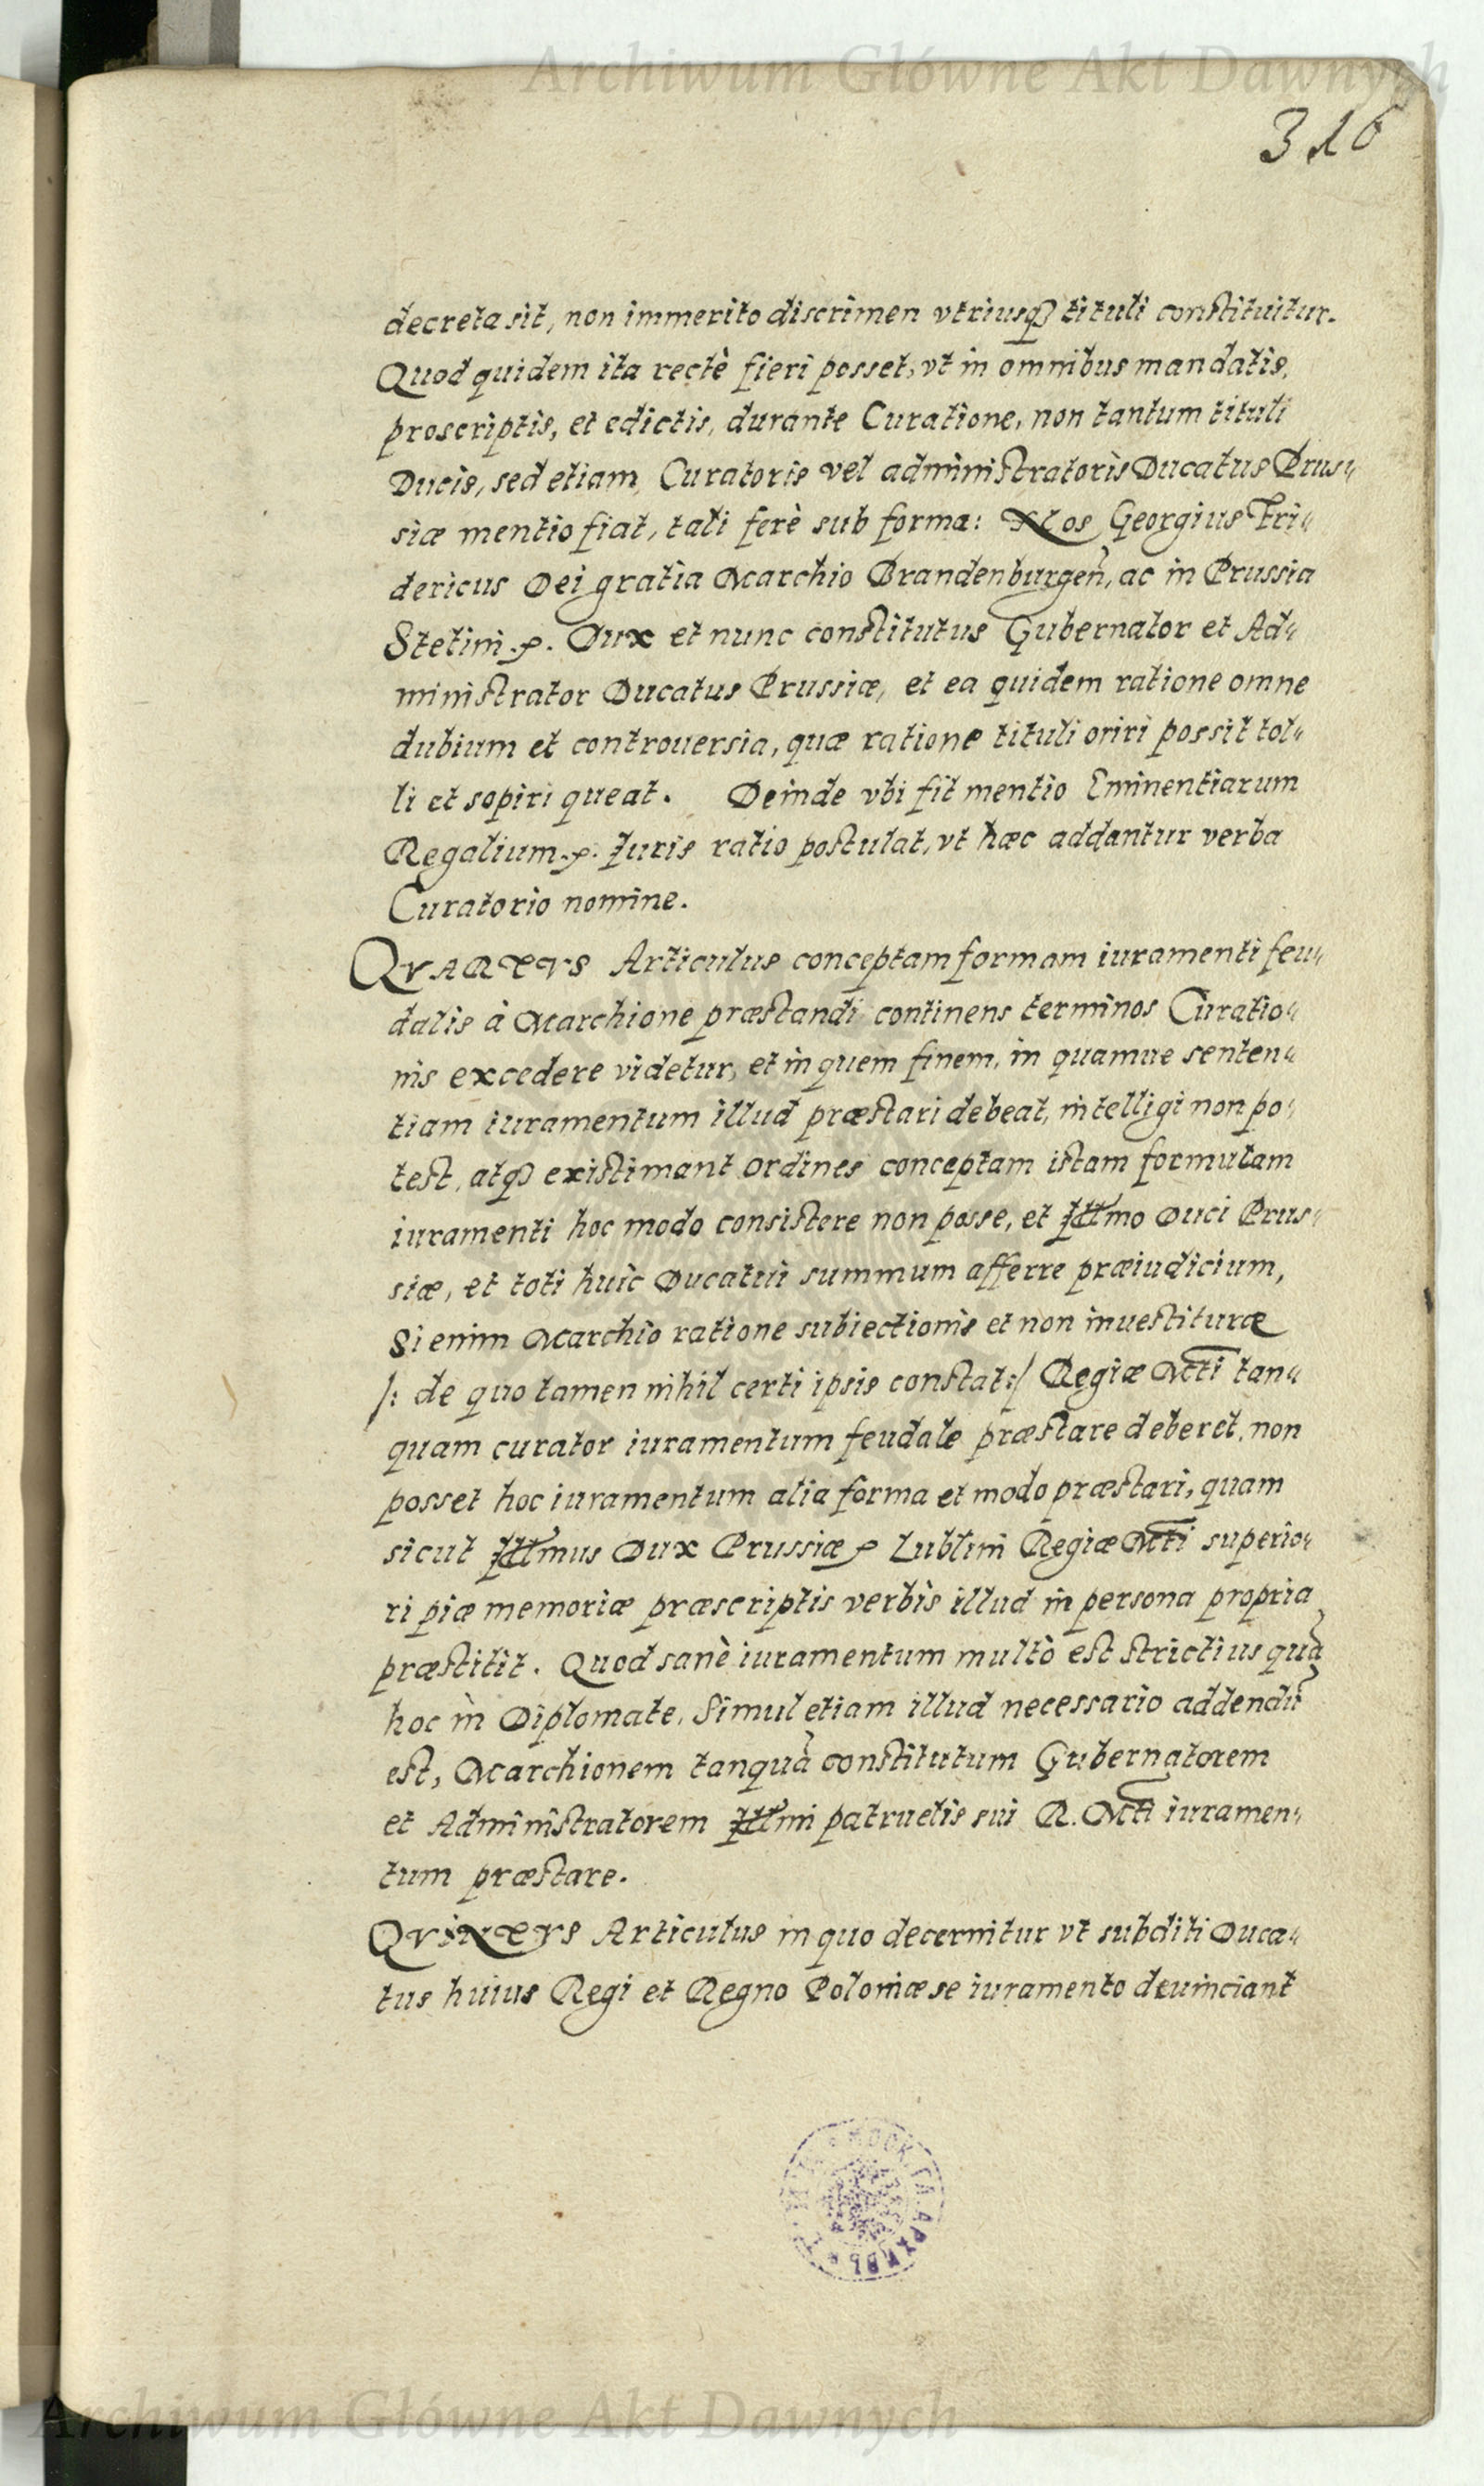 Archiwum Główne Akt Dawnych
316
decreta sit, non immerito discrimen vtriusq₃ tituli constituitur.
Quod quidem ita rectè fieri posset, vt in omnibus mandatis,
proscriptis, et edictis, durante Curatione, non tantum tituli
Ducis, sed etiam, Curatoris vel administratoris Ducatus Prus„
siæ mentio fiat, tali ferè sub forma: Nos Georgius Fri„
dericus Dei gratia Marchio Brandenburgeñ, ac in Prussia
Stetini .etc. Dux et nunc constitutus Gubernator et Ad„
ministrator Ducatus Prussiæ, et ea quidem ratione omne
dubium et controuersia, quæ ratione tituli oriri possit tol„
li et sopiri queat. Deinde vbi fit mentio Eminentiarum
Regalium .etc. Iuris ratio postulat, vt hæc addantur verba
Curatorio nomine.
QVARTVS Articulus conceptam formam iuramenti feu„
dalis à Marchione præstandi continens terminos Curatio„
nis excedere videtur, et in quem finem, in quamue senten„
tiam iuramentum illud præstari debeat, intelligi non po„
test, atq₃ existimant ordines conceptam istam formulam
iuramenti hoc modo consistere non posse, et Illmo Duci Prus„
siæ, et toti huic Ducatui summum afferre præiudicium,
Si enim Marchio ratione subiectionis et non inuestituræ
/: de quo tamen nihil certi ipsis constat:/ Regiæ Mtti tan„
quam curator iuramentum feudale præstare deberet, non
posset hoc iuramentum alia forma et modo præstari, quam
sicut Illmus Dux Prussiæ etc. Lublini Regiæ Mtti superio„
ri piæ memoriæ præscriptis verbis illud in persona propria
præstitit. Quod sanè iuramentum multò est strictius quã
hoc in Diplomate, Simul etiam illud necessario addendũ
est, Marchionem tanquã constitutum Gubernatorem
et Administratorem Illmi patruelis sui R. Mtti iuramen„
tum præstare.
QVINTVS Articulus in quo decernitur vt subditi Duca„
tus huius Regi et Regno Poloniæ se iuramento deuinciant
Archiwum Główne Akt Dawnych